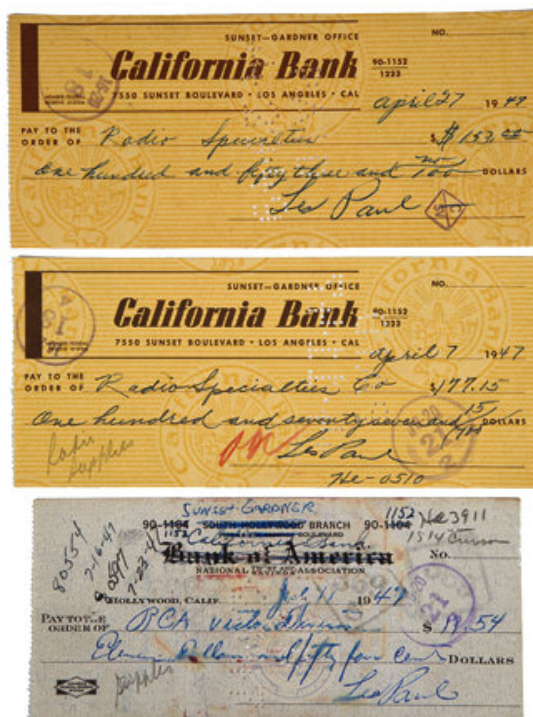 SUNSET—GARDNER OFFICE NO.
California Bank 90-1152 1223
7550 SUNSET BOULEVARD • LOS ANGELES • CAL
April 27 1947
PAY TO THE ORDER OF Radio Specialties $153.00
One hundred and fifty three and no/100 DOLLARS
Les Paul
SUNSET—GARDNER OFFICE NO.
California Bank 90-1152 1223
7550 SUNSET BOULEVARD • LOS ANGELES • CAL
April 7 1947
PAY TO THE ORDER OF Radio Specialties Co $177.15
One hundred and seventy seven and 15/ DOLLARS
Radio supplies
OK Les Paul
He-0510
SUNSET GARDNER
90-1104 SOUTH HOLLYWOOD BRANCH 90-1104 1152 He 3911
1152 California Bank. 1514 Curson
Bank of America No.
NATIONAL ASSOCIATION
SAVINGS
80554 7-16-47
80597 7-23-47
HOLLYWOOD, CALIF. July 11 1947
PAY TO THE ORDER OF RCA Victor Division $ 11.54
Eleven Dollars and fifty four cents DOLLARS
supplies
Les Paul